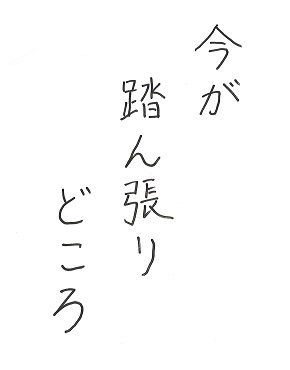 今が
踏ん張り
どころ